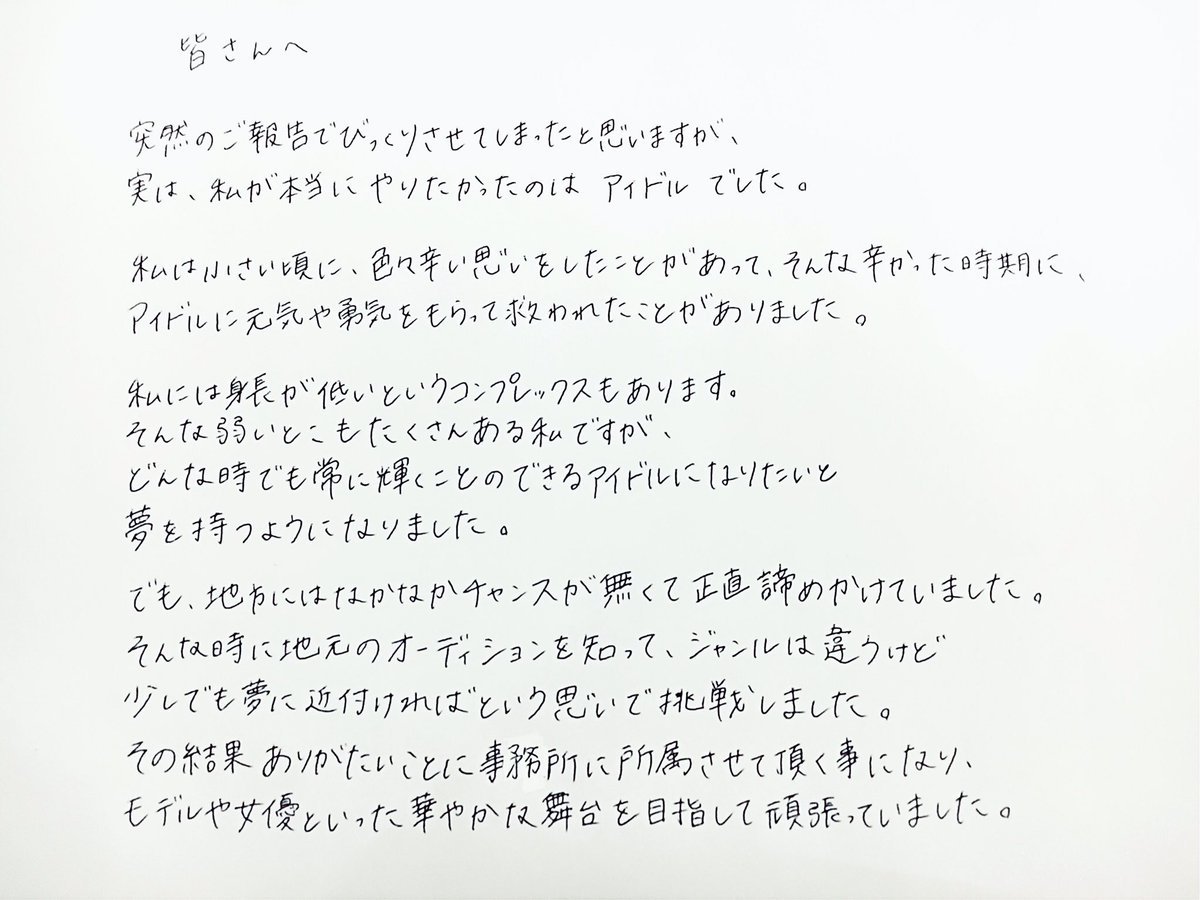 皆さんへ
突然のご報告でびっくりさせてしまったと思いますが、
実は、私が本当にやりたかったのは アイドル でした。
私は小さい頃に、色々辛い思いをしたことがあって、そんな辛かった時期に、
アイドルに元気や勇気をもらって救われたことがありました。
私には身長が低いというコンプレックスもあります。
そんな弱いとこもたくさんある私ですが、
どんな時でも常に輝くことのできるアイドルになりたいと
夢を持つようになりました。
でも、地方にはなかなかチャンスが無くて正直諦めかけていました。
そんな時に地元のオーディションを知って、ジャンルは違うけど
少しでも夢に近付ければという思いで挑戦しました。
その結果ありがたいことに事務所に所属させて頂く事になり、
モデルや女優といった華やかな舞台を目指して頑張っていました。